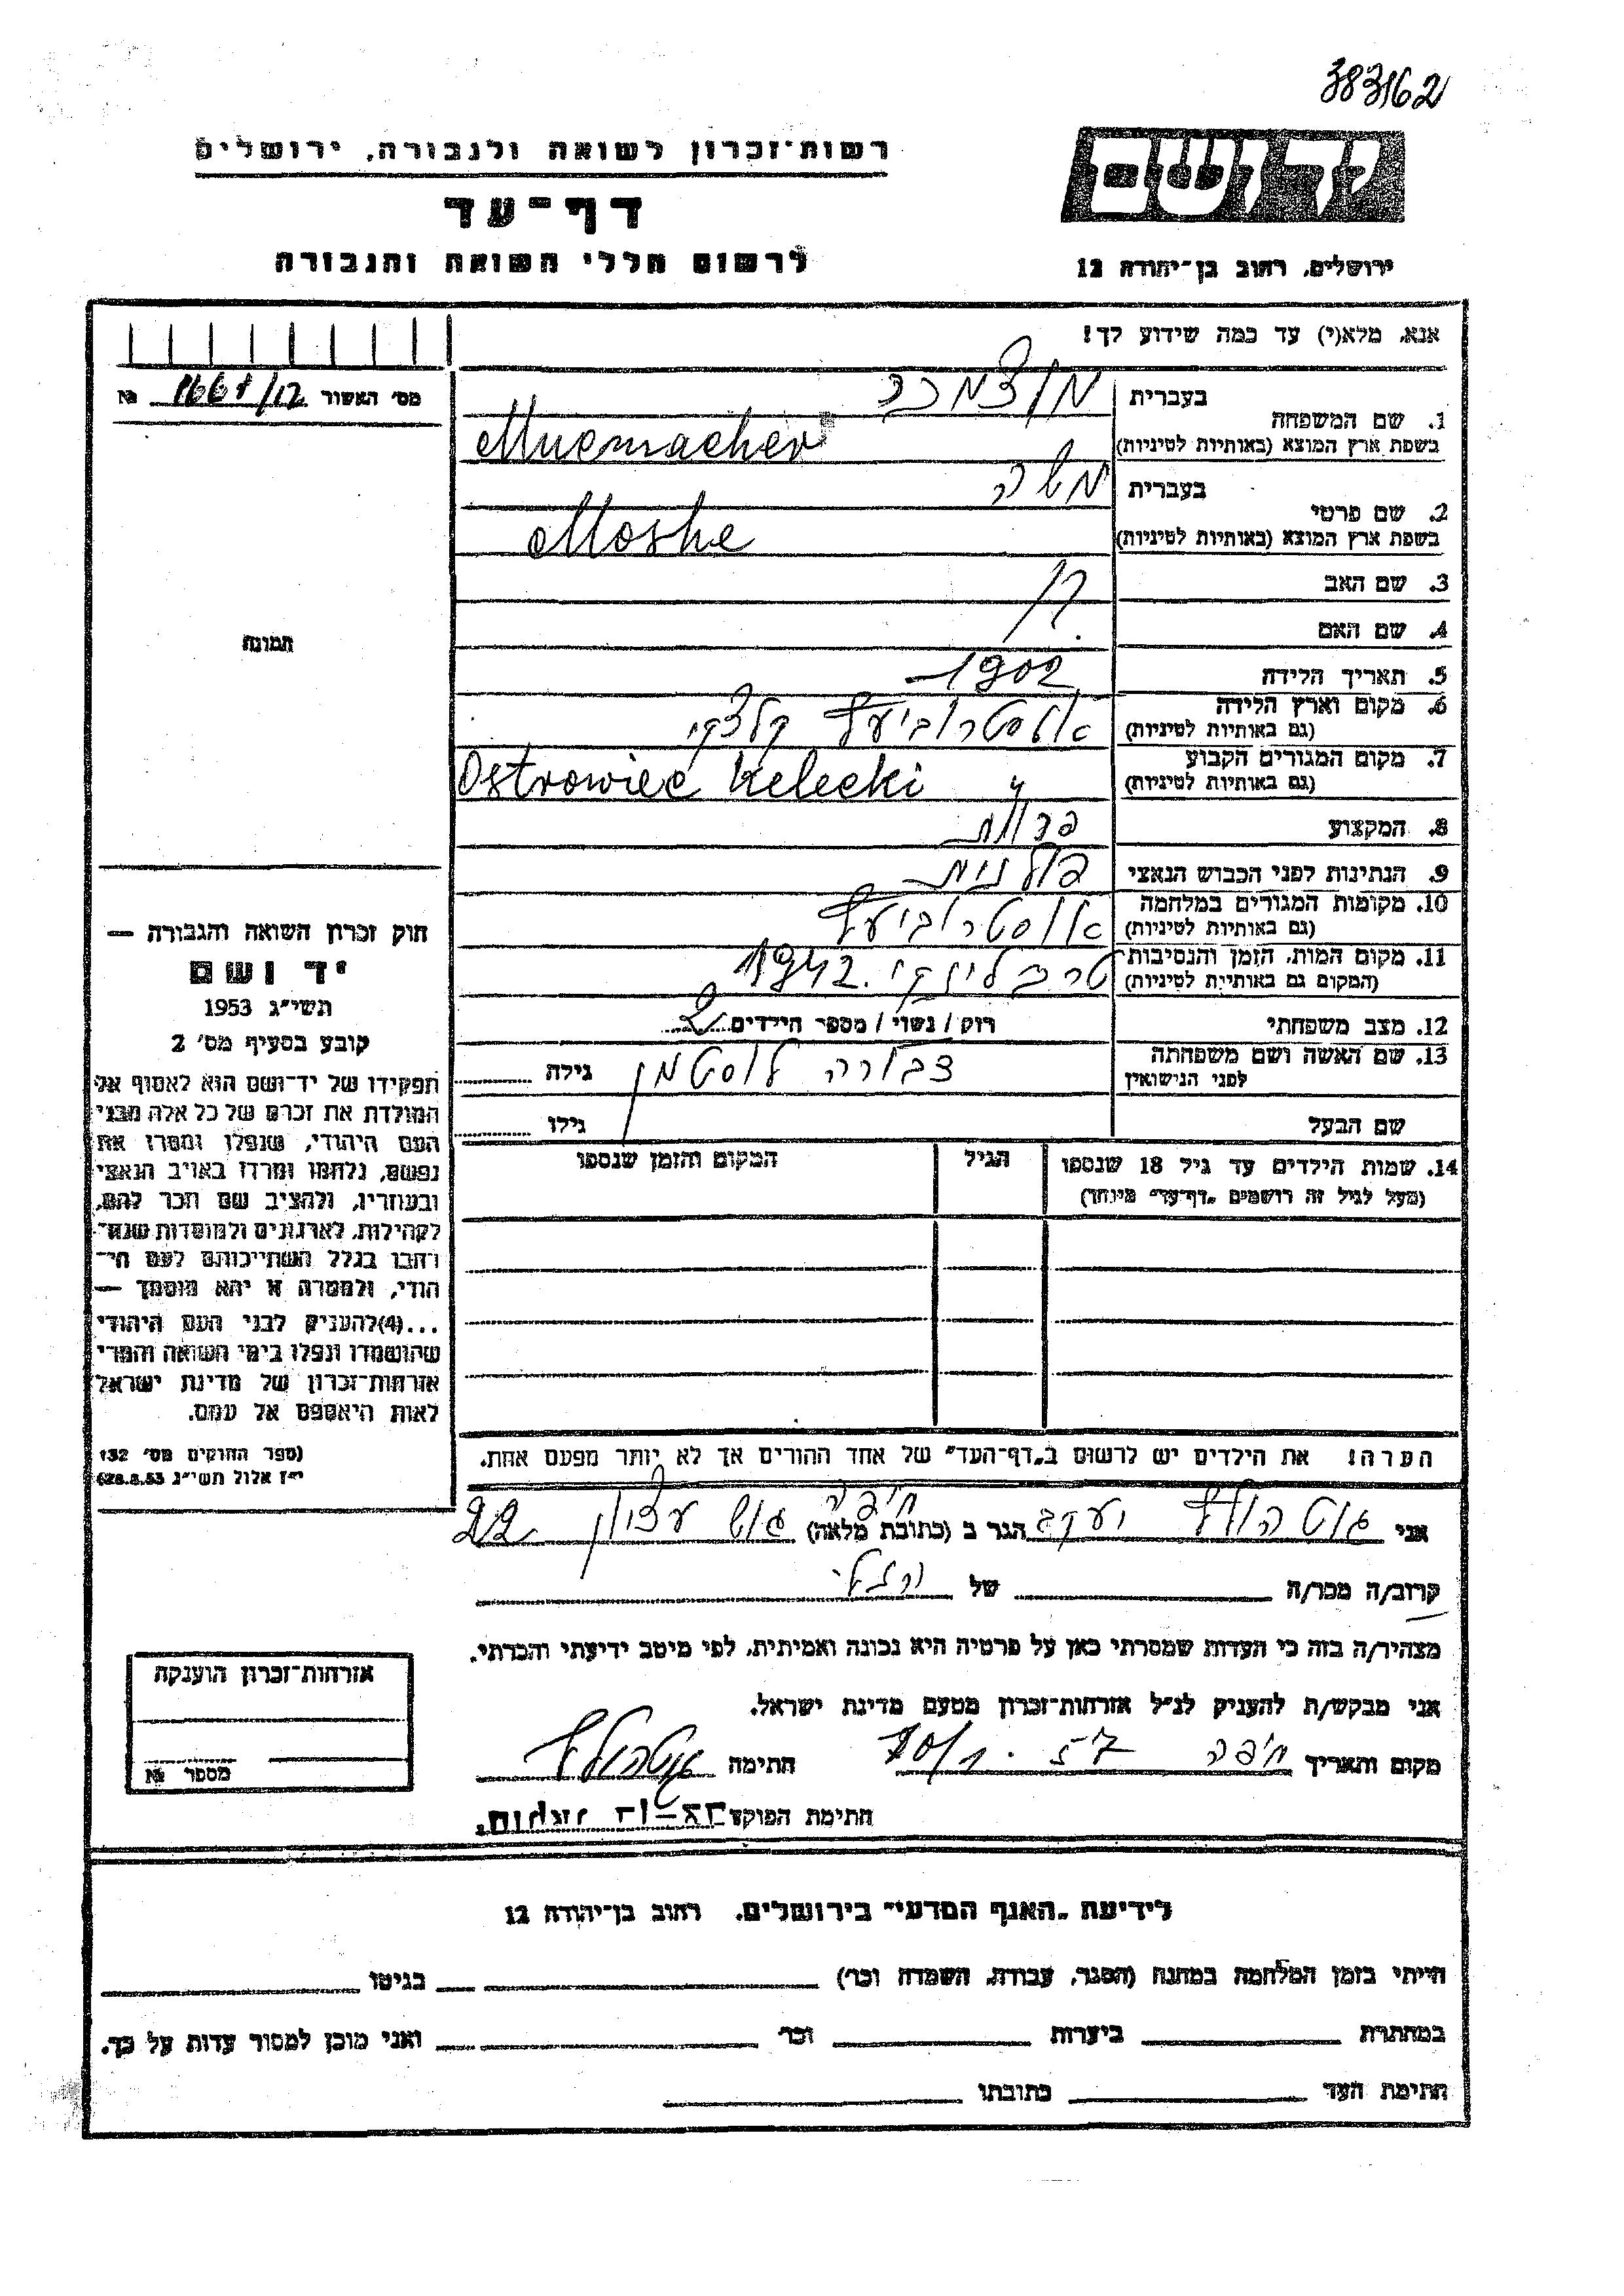 383162
רשות-זכרון לשואה ולגבורה, ירושלים
יד ושם
דף-עד
לרשום חללי השואה והגבורה
ירושלים, רחוב בן-יהודה 12
אנא, מלא(י) עד כמה שידוע לך!
מס' האשור 1667/12 №
1. שם המשפחה
בעברית מוצמכר
בשפת ארץ המוצא (באותיות לטיניות) Mucmacher
2. שם פרטי
בעברית משה
בשפת ארץ המוצא (באותיות לטיניות) Moshe
3. שם האב
4. שם האם
5. תאריך הלידה 1902
6. מקום וארץ הלידה (גם באותיות לטיניות) אוסטרוביעץ קלצקי
7. מקום המגורים הקבוע (גם באותיות לטיניות) Ostrowiec Kelecki
8. המקצוע
9. הנתינות לפני הכבוש הנאצי פולנית
10. מקומות המגורים במלחמה (גם באותיות לטיניות) אוסטרוביעץ
11. מקום המות, הזמן והנסיבות (המקום גם באותיות לטיניות) טרבלינקי. 1942
12. מצב משפחתי רווק/נשוי/מספר הילדים 2
13. שם האשה ושם משפחתה לפני הנישואין צבורה לוסטמן גילה
שם הבעל גילו
14. שמות הילדים עד גיל 18 שנספו
(מעל לגיל זה רושמים "דף-עד" מיוחד)
הגיל
המקום והזמן שנספו
הערה: את הילדים יש לרשום ב"דף-העד" של אחד ההורים אך לא יותר מפעם אחת.
תמונה
חוק זכרון השואה והגבורה —
יד ושם
תשי"ג 1953
קובע בסעיף מס' 2
תפקידו של יד-ושם הוא לאסוף אל
המולדת את זכרם של כל אלה מבני
העם היהודי, שנפלו ומסרו את
נפשם, נלחמו ומרדו באויב הנאצי
ובעוזריו, ולהציב שם וזכר להם,
לקהילות, לארגונים ולמוסדות שנח-
רבו בגלל השתייכותם לעם הי-
הודי, ולמטרה זו יהא מוסמך —
...(4) להעניק לבני העם היהודי
שהושמדו ונפלו בימי השואה והמרי
אזרחות-זכרון של מדינת ישראל
לאות היאספם אל עמם.
(ספר החוקים מס' 132
י"ז אלול תשי"ג 28.8.53)
אני גוטהולץ יעקב הגר ב (כתובת מלאה) חיפה גוש עציון 22
קרוב/ה מכר/ה של
מצהיר/ה בזה כי העדות שמסרתי כאן על פרטיה היא נכונה ואמיתית, לפי מיטב ידיעתי והכרתי.
אני מבקש/ת להעניק לנ"ל אזרחות-זכרון מטעם מדינת ישראל.
מקום ותאריך חיפה 57 חתימה גוטהולץ
חתימת הפוקד
אזרחות-זכרון הוענקה
מספר №
לידיעת "האגף המדעי" בירושלים, רחוב בן-יהודה 12
הייתי בזמן המלחמה במחנה (הסגר, עבודת, השמדה וכו') בגיטו
במחתרת ביערות וכו' ואני מוכן למסור עדות על כך.
חתימת העד כתובתו